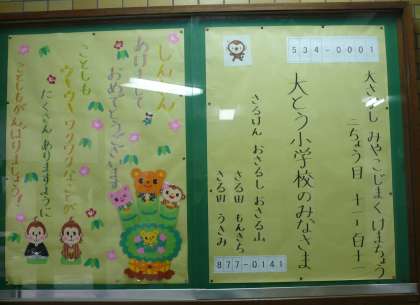 しんねん
あけまして
おめでとうございます
ことしも
ウキウキ ワクワクなことが
たくさん ありますように
ことしもがんばりましょう！
534-0001
大さかし みやこじまく けまちょう
二ちょう目 十一 白十一
大とう小学校のみなさま
さるけん おさるし おさる山
さる田 もんきち
さる田 うきみ
877-0141